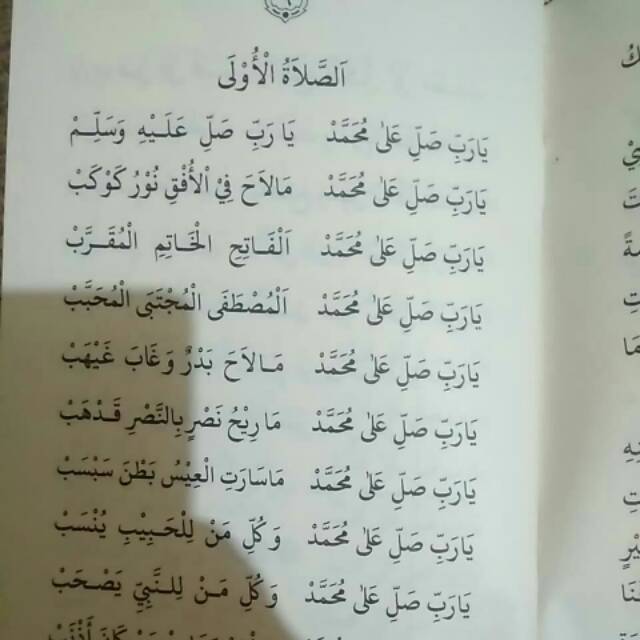 اَلصَّلَاةُ الْأُوْلَى
يَارَبِّ صَلِّ عَلىٰ مُحَمَّدْ يَا رَبِّ صَلِّ عَلَيْهِ وَسَلِّمْ
يَارَبِّ صَلِّ عَلىٰ مُحَمَّدْ مَالَاحَ فِيْ الْأُفْقِ نُوْرُ كَوْكَبْ
يَارَبِّ صَلِّ عَلىٰ مُحَمَّدْ اَلْفَاتِحِ الْخَاتِمِ الْمُقَرَّبْ
يَارَبِّ صَلِّ عَلىٰ مُحَمَّدْ اَلْمُصْطَفَى الْمُجْتَبَى الْمُحَبَّبْ
يَارَبِّ صَلِّ عَلىٰ مُحَمَّدْ مَالَاحَ بَدْرٌ وَغَابَ غَيْهَبْ
يَارَبِّ صَلِّ عَلىٰ مُحَمَّدْ مَارِيْحُ نَصْرٍ بِالنَّصْرِ قَدْهَبْ
يَارَبِّ صَلِّ عَلىٰ مُحَمَّدْ مَاسَارَتِ الْعِيْسُ بَطْنَ سَبْسَبْ
يَارَبِّ صَلِّ عَلىٰ مُحَمَّدْ وَكُلِّ مَنْ لِلْحَبِيْبِ يُنْسَبْ
يَارَبِّ صَلِّ عَلىٰ مُحَمَّدْ وَكُلِّ مَنْ لِلنَّبِيِّ يَصْحَبْ